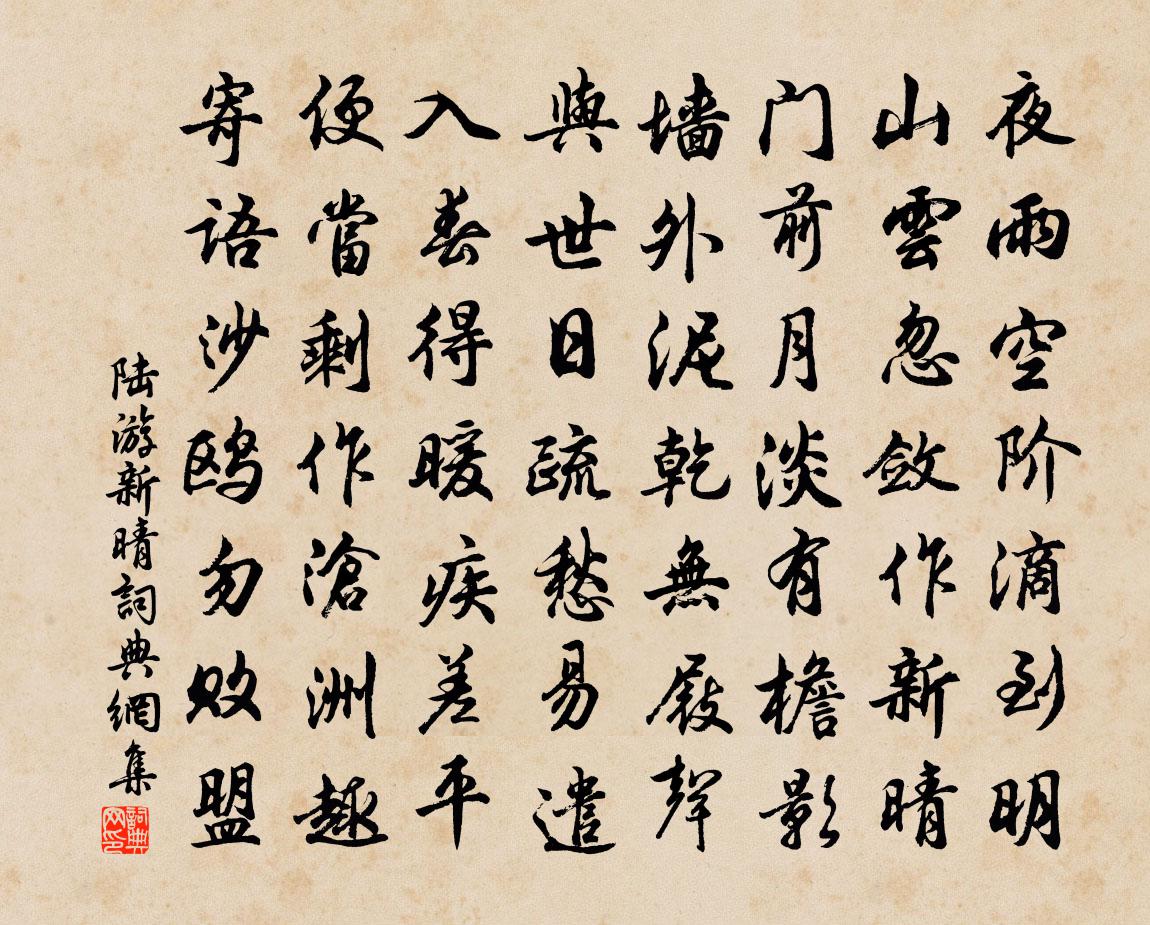 夜雨空阶滴到明
山雲忽斂作新晴
门前月淡有檐影
墙外泥乾無屐聲
與世日疏愁易遣
入春得暖疾差平
便當剩作滄洲趣
寄語沙鸥勿敗盟
陆游新晴詞典網集
詞典網印